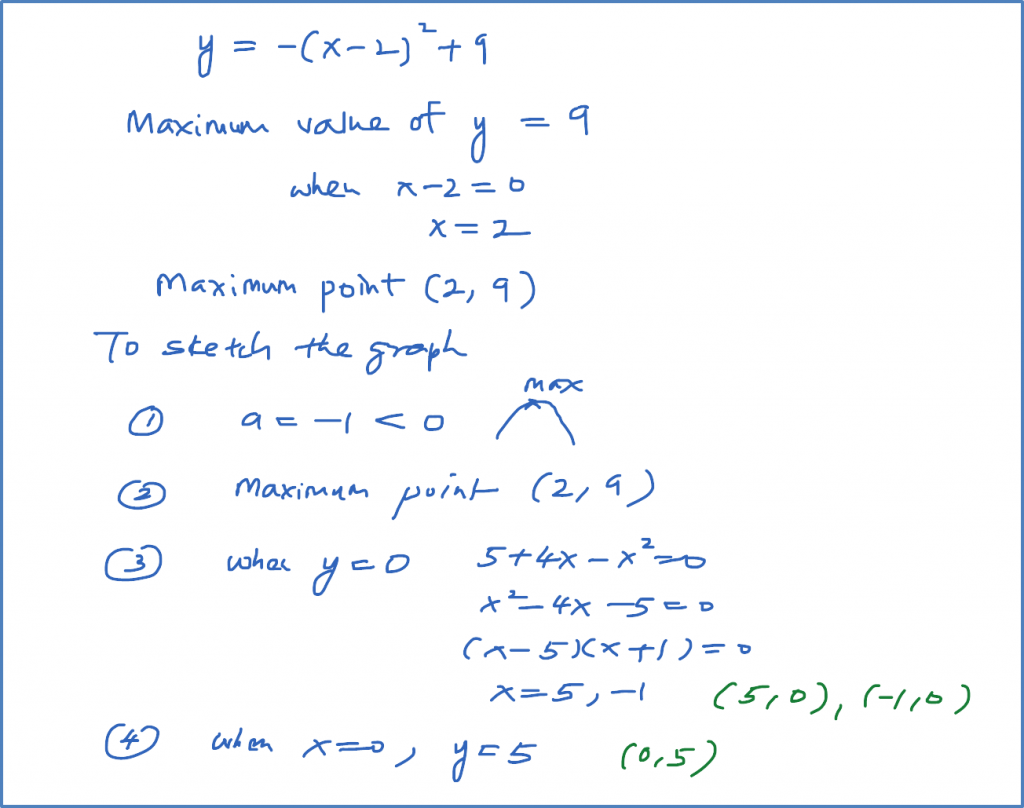 y = -(x-2)² + 9
Maximum value of y = 9
when x-2 = 0
x = 2
Maximum point (2, 9)
To sketch the graph
max
① a = -1 < 0
② Maximum point (2, 9)
③ when y = 0 5+4x-x² = 0
x²-4x-5 = 0
(x-5)(x+1) = 0
x = 5, -1 (5,0), (-1,0)
④ when x=0, y=5 (0,5)